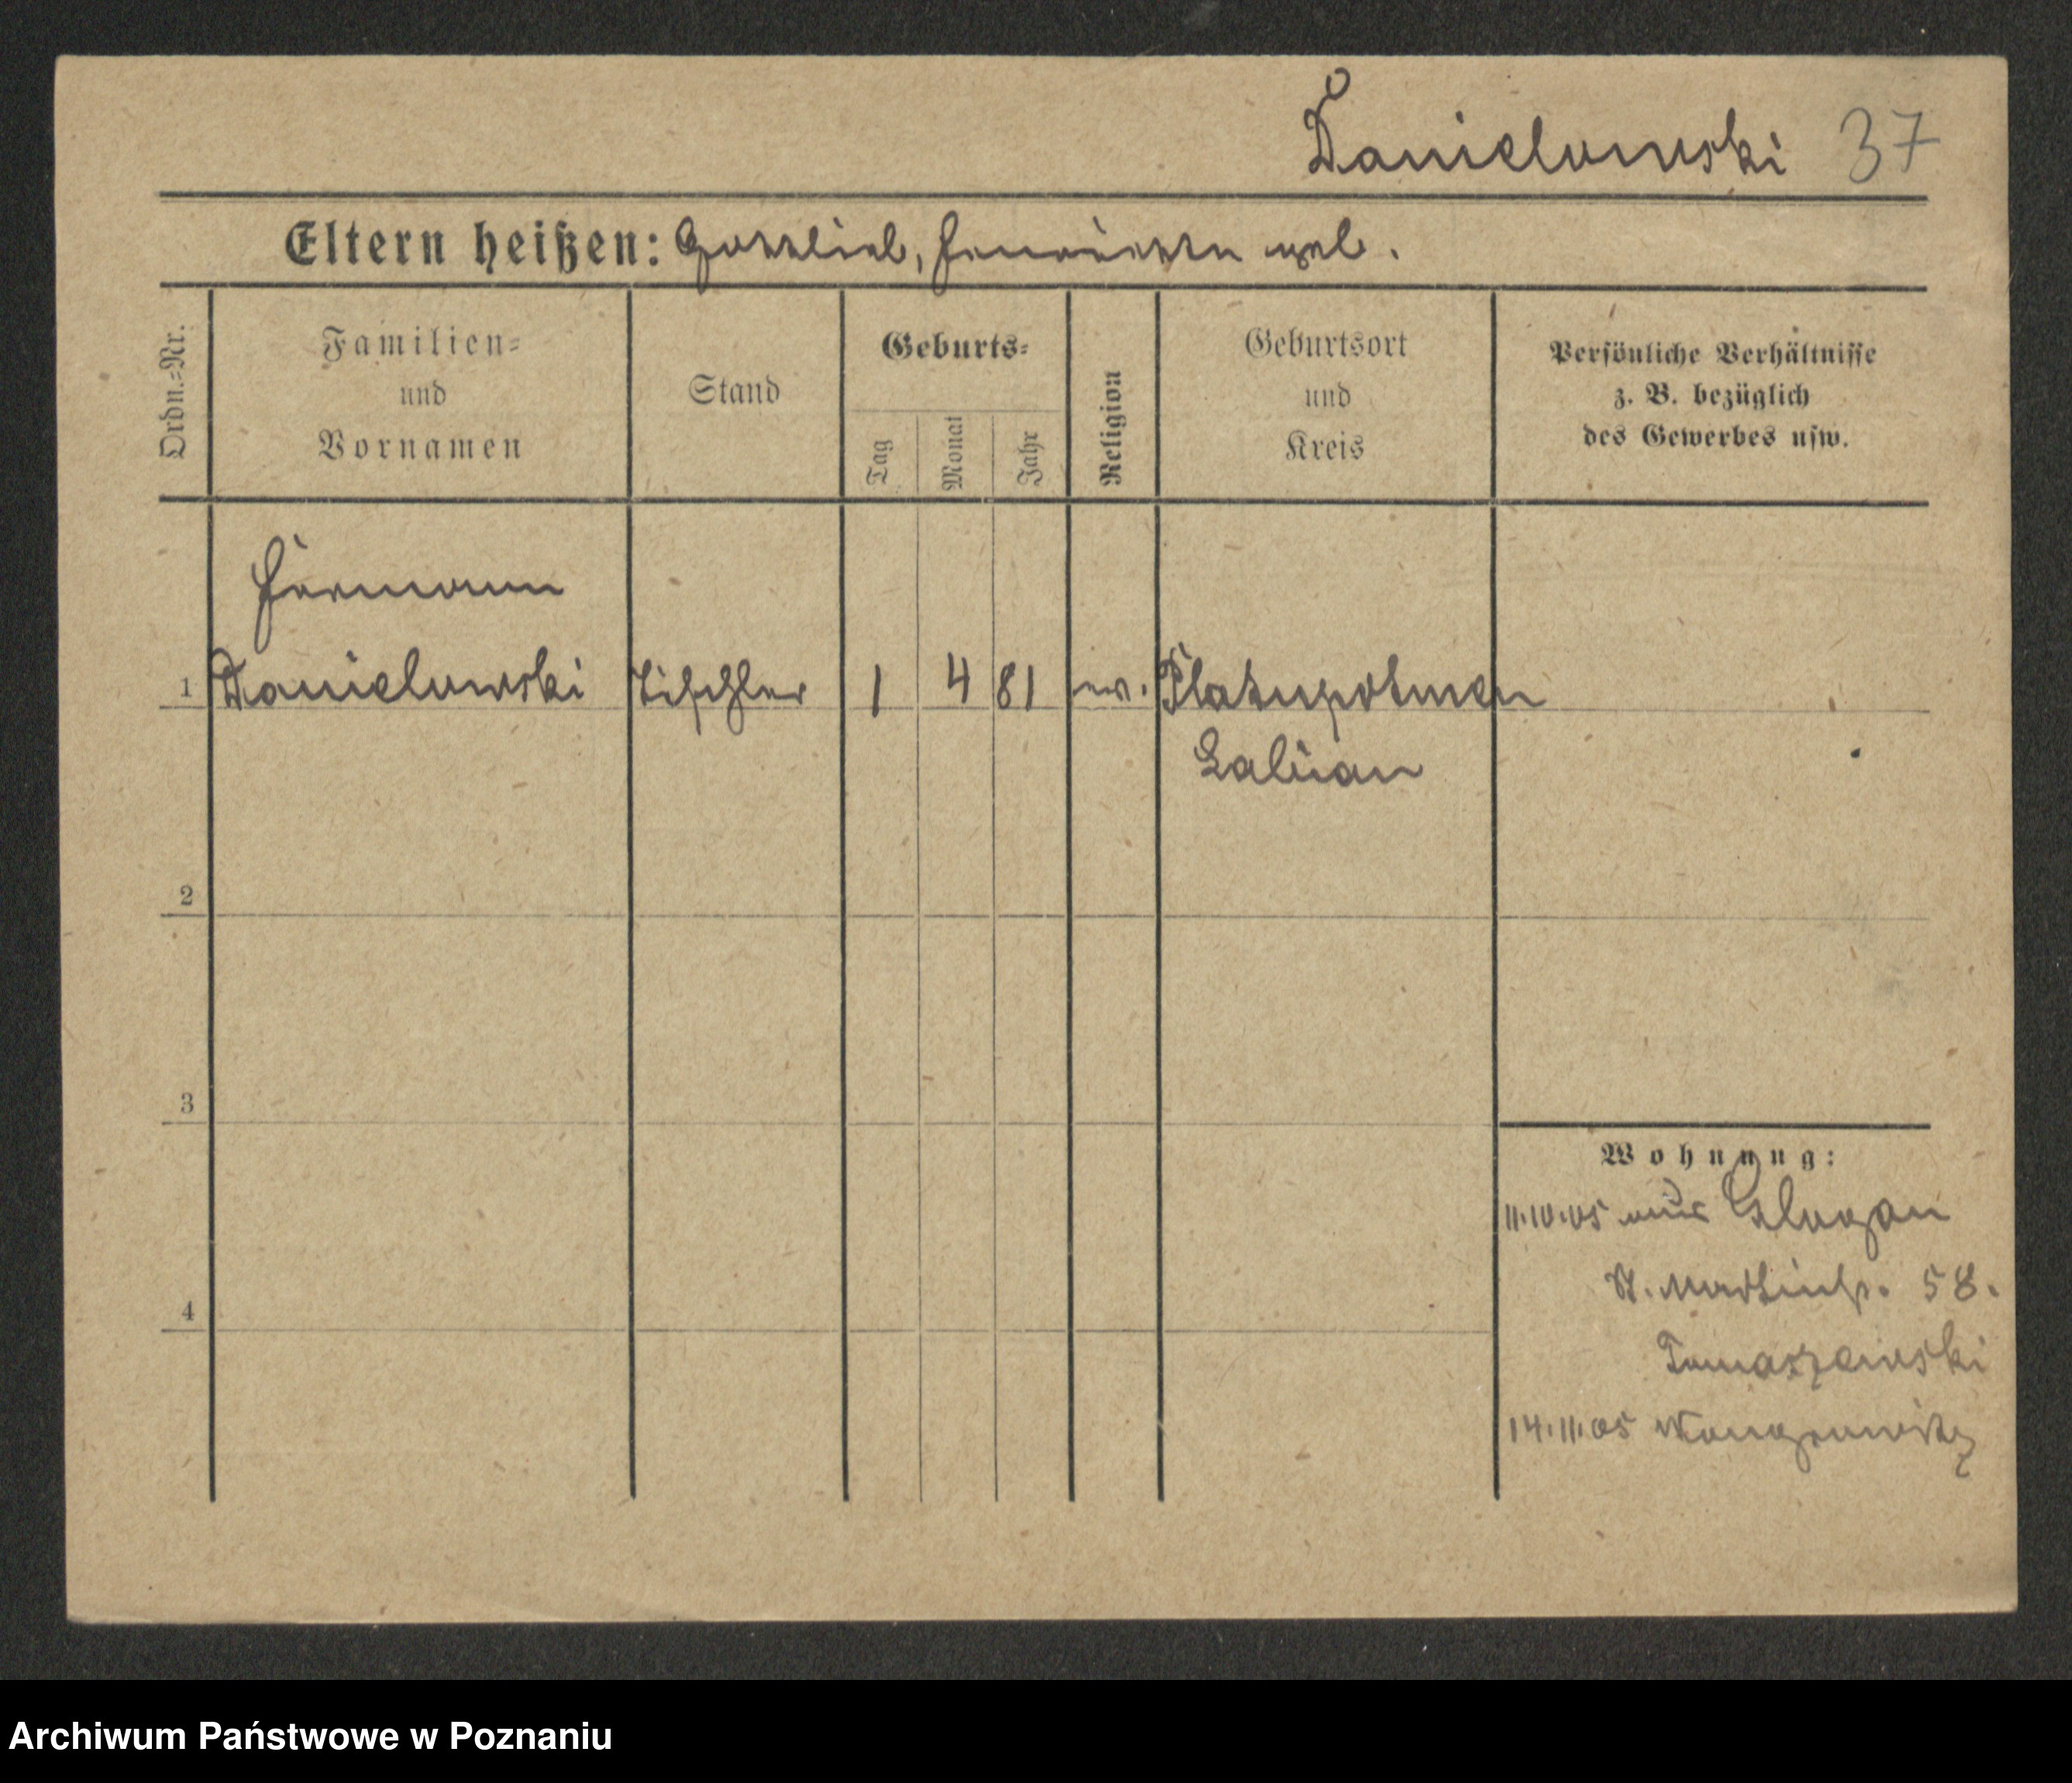 Danielowski 37
Eltern heißen: Gottlieb, Henriette geb.
Ordn.=Nr.
Familien=
und
Vornamen
Stand
Geburts=
Tag
Monat
Jahr
Religion
Geburtsort
und
Kreis
Persönliche Verhältnisse
z. B. bezüglich
des Gewerbes usw.
Hermann
1 Danielowski Tischler 1 4 81 ev.
Labiau
2
3
4
Wohnung:
11.10.05 aus Glogau
St. Martinstr. 58.
Tomaszewski
14.11.05 Wongrowitz
Archiwum Państwowe w Poznaniu